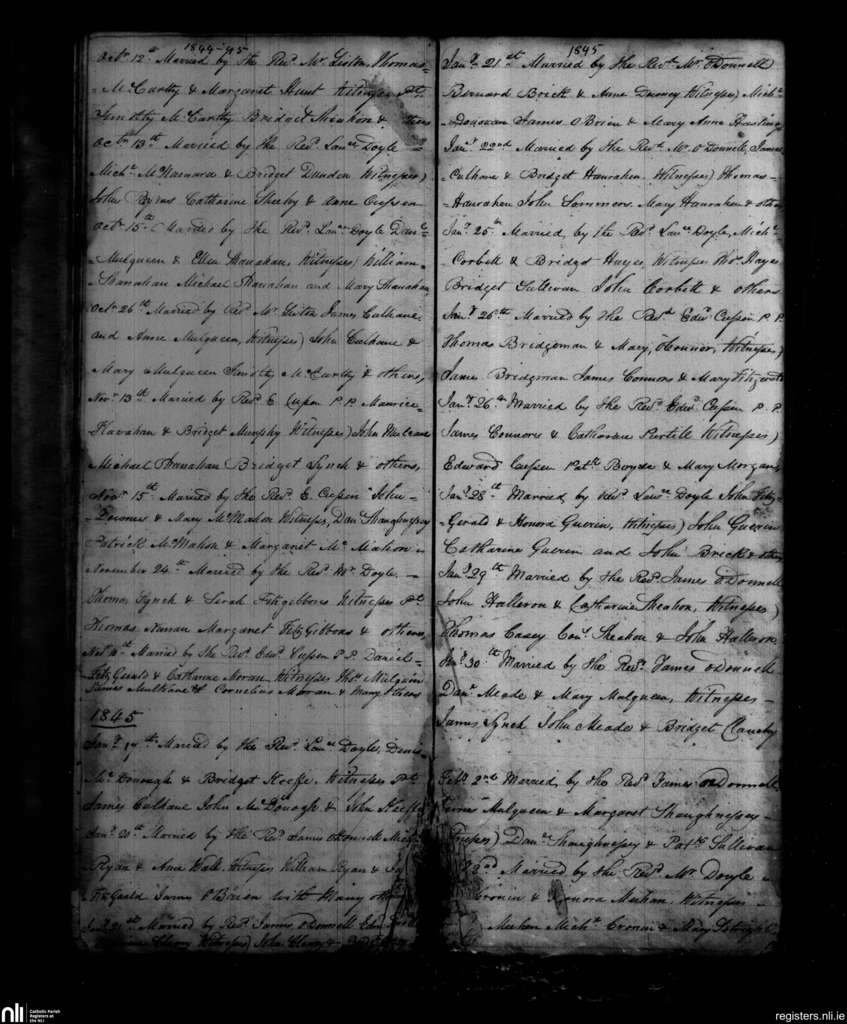 1844-45
Octr 12th Married by the Revd Mr Liston Thomas
McCarthy & Margaret Hunt Witnesses Pt
Timothy McCarthy Bridget Sheahon & others
Octr 13th Married by the Revd Lawce Doyle
Michl McNamara & Bridget Dundon Witnesses)
John Catharine Sheehy & Anne Cussen
Octr 15th Married by the Revd Lawce Doyle Danl
Mulqueen & Ellen Shanahan, Witnesses) William
Shanahan Michael Shanahan and Mary Shanahan
Octr 26th Married by Revd Mr Liston James Culhane
and Anne Mulqueen, Witnesses) John Culhane &
Mary Mulqueen Timothy McCarthy & others,
Novr 13th Married by Revd E. Cussen P.P. Maurice
Hanahan & Bridget Murphy Witnesses) John
Michael Shanahan Bridget Lynch & others,
Novr 15th Married by the Revd E. Cussen John
& Mary McMahon Witnesses, Danl Shaughnessy
Patrick McMahon & Margaret McMahon
November 24th Married by the Revd Mr Doyle
Thomas Lynch & Sarah Fitzgibbons Witnesses Pt
Thomas Noonan Margaret FitzGibbons & others,
Married by the Revd Edwd Cussen P.P. Daniel
FitzGerald & Catherine Moran Witnesses Thos Mulquin
James Cornelius Moran & Many others
1845
Jany 17th Married by the Revd Lawce Doyle, Denis
McDonough & Bridget Keeffe. Witnesses Pt
James Culhane John McDonogh & John Keeffe
Jany 20th Married by the Revd James O'Donnell Michl
Ryan & Ann Wall Witnesses William Ryan &
FitzGerald James O'Brien with Many others
Jany 21st Married by Revd James O'Donnell Edmd
Witnesses) John &
1845
Jany 21st Married by the Revd Mr O'Donnell)
Bernard Brick & Anne Witnesses) Michl
Donovan James O'Brien & Mary Anne Hastings
Jany 22nd Married by the Revd Mr O'Donnell, James
Culhane & Bridget Hanrahan Witnesses) Thomas
Hanrahan John Sommors Mary Hanrahan & others
Jany 25th Married, by the Revd Lawce Doyle, Michl
Corbett & Bridget Hayes, Witnesses Thos Hayes
Bridget Sullivan John Corbett & others
Jany 26th Married by the Revd Edwd Cussen P.P.
Thomas Bridgeman & Mary, O'Connor, Witnesses)
James Bridgman James Connors & Mary Fitzgerald
Jany 26th Married by the Revd Edwd Cussen P.P.
James Connors & Catharine Purtill Witnesses)
Edward Cussen Patk Boyde & Mary Morgan
Jany 28th Married by Revd Lawce Doyle John Fitz
Gerald & Honora Guerin, Witnesses) John Guerin
Catharine Guerin and John Brick & others
Jany 29th Married by the Revd James O'Donnell
John Halleron & Catharine Sheahon, Witnesses)
Thomas Casey Sheahon & John Halleron
Jany 30th Married by the Revd James O'Donnell
Danl Meade & Mary Mulqueen, Witnesses
James Lynch John Meade & Bridget Clanchy
Feby 2nd Married, by the Revd James O'Donnell
Mulqueen & Margaret Shaughnessy
Witnesses) Danl Shaughnessy & Patk Sullivan
Married by the Revd Mr Doyle
Cronin & Honora Meehan. Witnesses
Meehan Michl Cronin & Mary
nli
Catholic Parish
Registers at
the NLI
registers.nli.ie